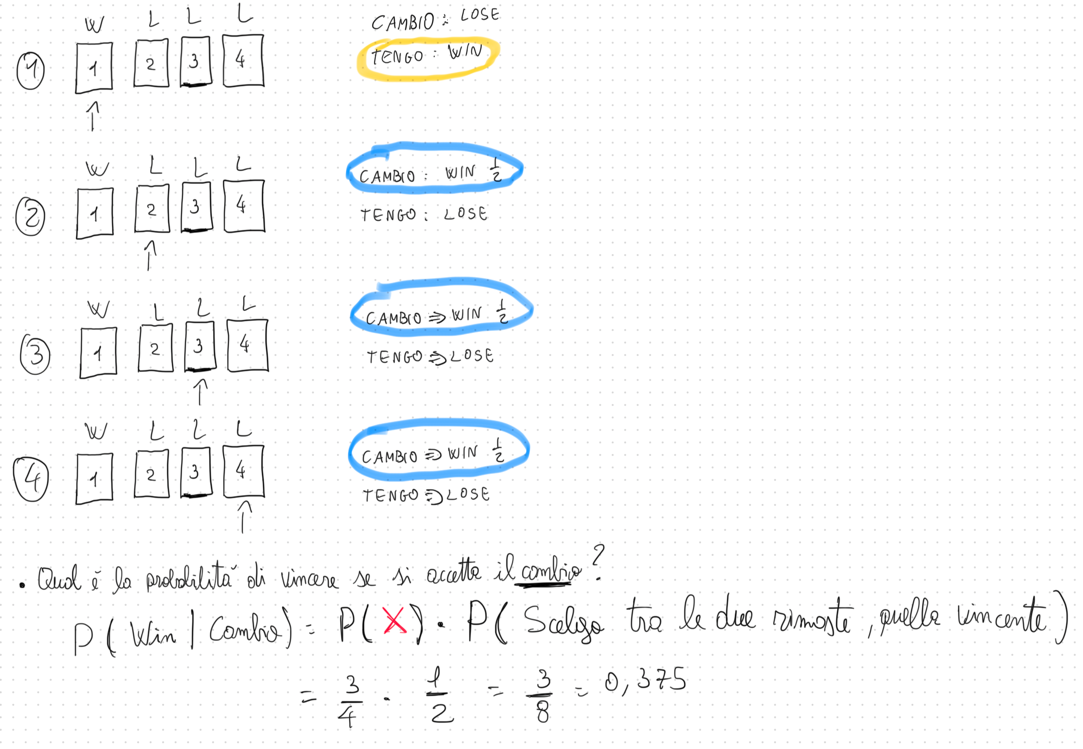 W L L L
CAMBIO : LOSE
① 1 2 3 4
TENGO : WIN
W L L L
CAMBIO : WIN 1/2
② 1 2 3 4
TENGO : LOSE
W L L L
CAMBIO ⇒ WIN 1/2
③ 1 2 3 4
TENGO ⇒ LOSE
W L L L
CAMBIO ⇒ WIN 1/2
④ 1 2 3 4
TENGO ⇒ LOSE
• Qual è la probabilità di vincere se si accetta il cambio?
P( Win | Cambio) = P(X) · P( Scelgo tra le due rimaste, quella vincente)
= 3/4 · 1/2 = 3/8 = 0,375